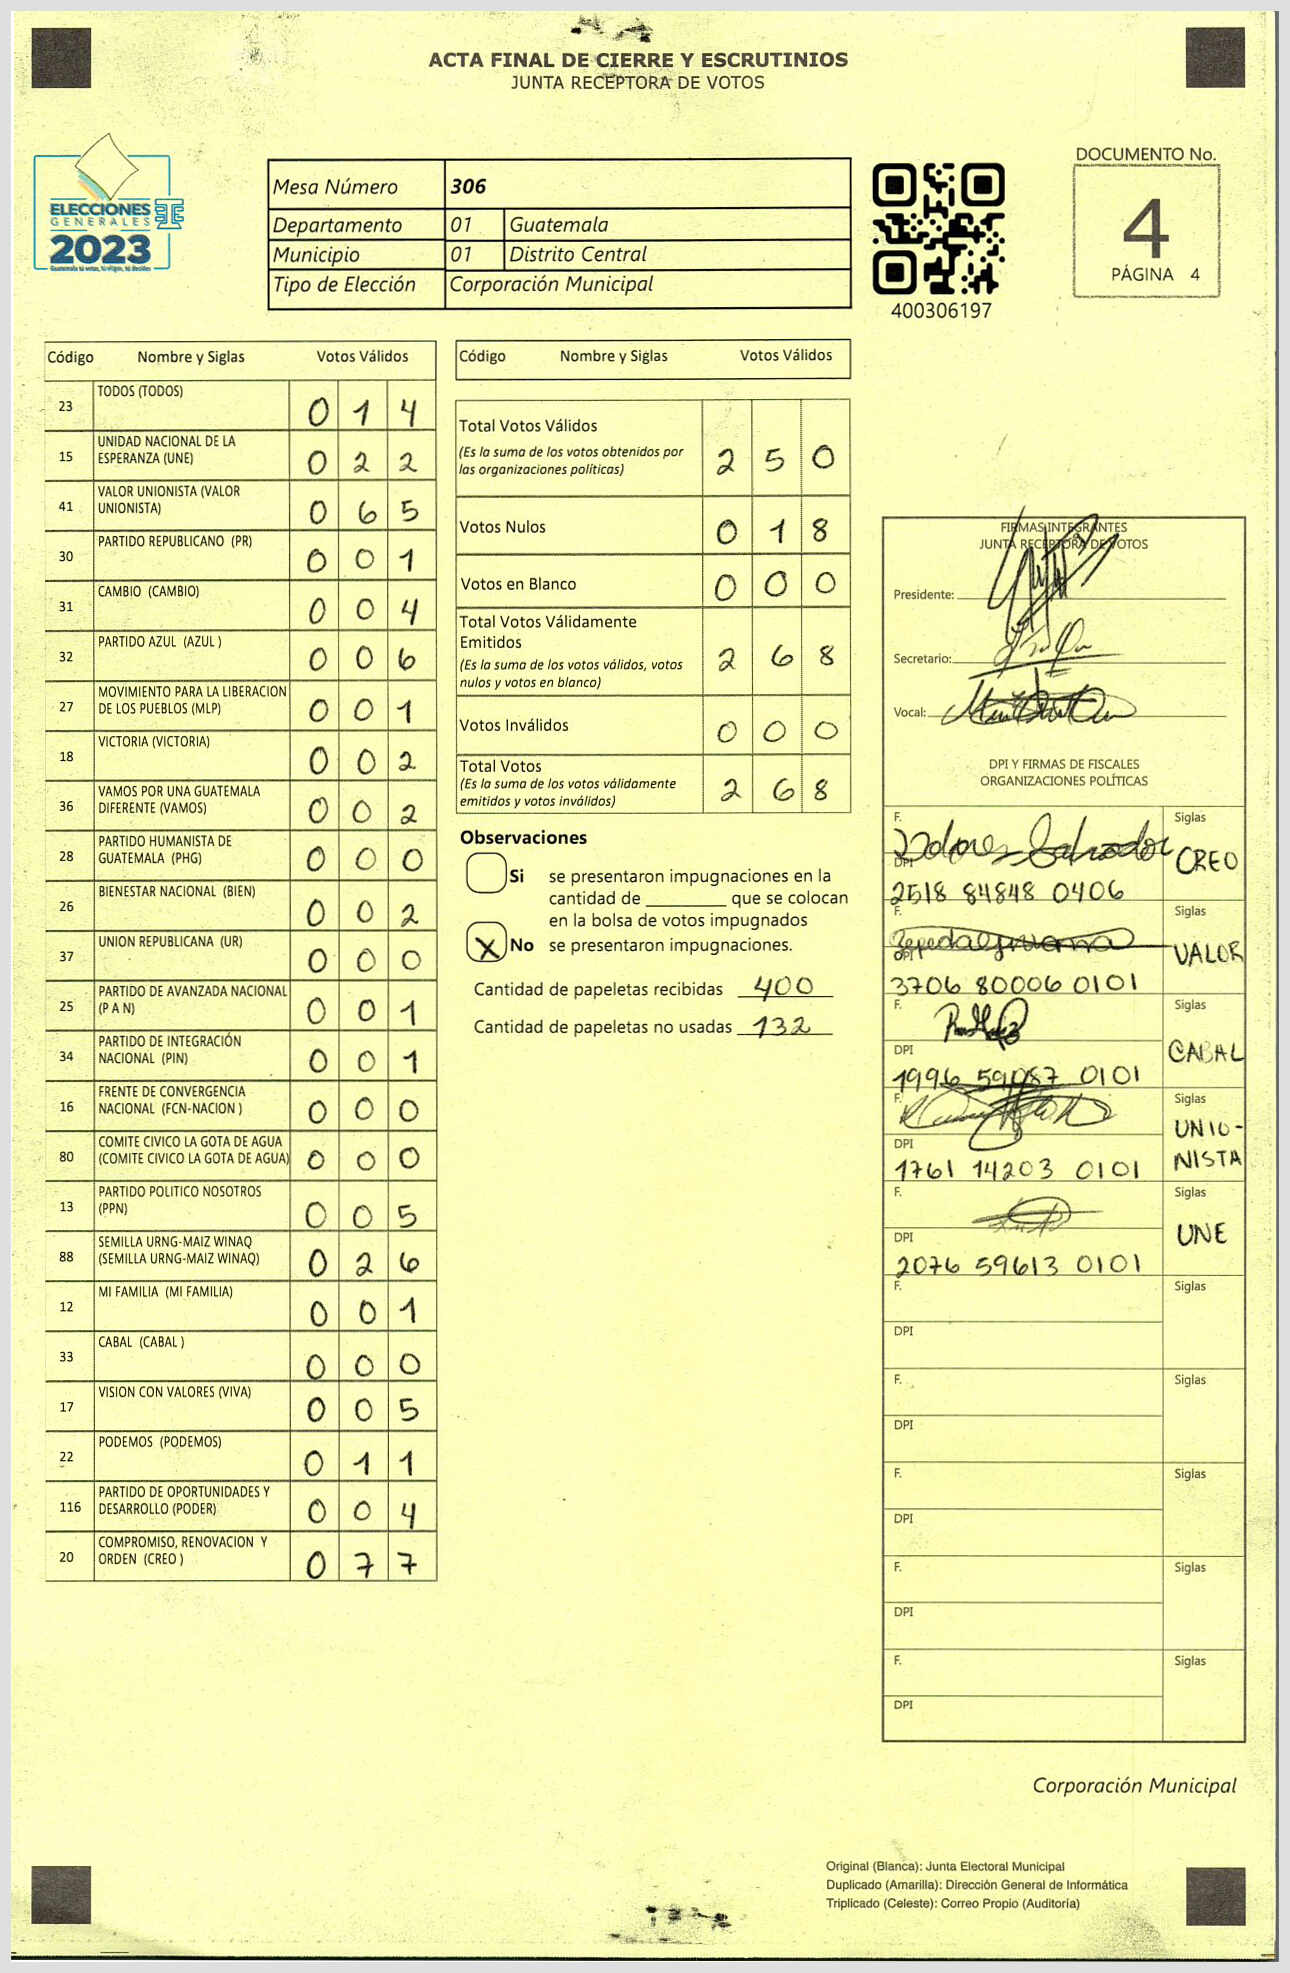 ACTA FINAL DE CIERRE Y ESCRUTINIOS
JUNTA RECEPTORA DE VOTOS
ELECCIONES
GENERALES
2023
Guatemala tú votas, tú eliges, tú decides
Mesa Número 306
Departamento 01 Guatemala
Municipio 01 Distrito Central
Tipo de Elección Corporación Municipal
400306197
DOCUMENTO No.
4
PÁGINA 4
Código Nombre y Siglas Votos Válidos
23 TODOS (TODOS) 0 1 4
15 UNIDAD NACIONAL DE LA
ESPERANZA (UNE) 0 2 2
41 VALOR UNIONISTA (VALOR
UNIONISTA) 0 6 5
30 PARTIDO REPUBLICANO (PR) 0 0 1
31 CAMBIO (CAMBIO) 0 0 4
32 PARTIDO AZUL (AZUL ) 0 0 6
27 MOVIMIENTO PARA LA LIBERACION
DE LOS PUEBLOS (MLP) 0 0 1
18 VICTORIA (VICTORIA) 0 0 2
36 VAMOS POR UNA GUATEMALA
DIFERENTE (VAMOS) 0 0 2
28 PARTIDO HUMANISTA DE
GUATEMALA (PHG) 0 0 0
26 BIENESTAR NACIONAL (BIEN) 0 0 2
37 UNION REPUBLICANA (UR) 0 0 0
25 PARTIDO DE AVANZADA NACIONAL
(P A N) 0 0 1
34 PARTIDO DE INTEGRACIÓN
NACIONAL (PIN) 0 0 1
16 FRENTE DE CONVERGENCIA
NACIONAL (FCN-NACION ) 0 0 0
80 COMITE CIVICO LA GOTA DE AGUA
(COMITE CIVICO LA GOTA DE AGUA) 0 0 0
13 PARTIDO POLITICO NOSOTROS
(PPN) 0 0 5
88 SEMILLA URNG-MAIZ WINAQ
(SEMILLA URNG-MAIZ WINAQ) 0 2 6
12 MI FAMILIA (MI FAMILIA) 0 0 1
33 CABAL (CABAL ) 0 0 0
17 VISION CON VALORES (VIVA) 0 0 5
22 PODEMOS (PODEMOS) 0 1 1
116 PARTIDO DE OPORTUNIDADES Y
DESARROLLO (PODER) 0 0 4
20 COMPROMISO, RENOVACION Y
ORDEN (CREO ) 0 7 7
Código Nombre y Siglas Votos Válidos
Total Votos Válidos
(Es la suma de los votos obtenidos por
las organizaciones políticas) 2 5 0
Votos Nulos 0 1 8
Votos en Blanco 0 0 0
Total Votos Válidamente
Emitidos
(Es la suma de los votos válidos, votos
nulos y votos en blanco) 2 6 8
Votos Inválidos 0 0 0
Total Votos
(Es la suma de los votos válidamente
emitidos y votos inválidos) 2 6 8
Observaciones
Si se presentaron impugnaciones en la
cantidad de ________ que se colocan
en la bolsa de votos impugnados
X No se presentaron impugnaciones.
Cantidad de papeletas recibidas 400
Cantidad de papeletas no usadas 132
FIRMAS INTEGRANTES
JUNTA RECEPTORA DE VOTOS
Presidente:
Secretario:
Vocal:
DPI Y FIRMAS DE FISCALES
ORGANIZACIONES POLÍTICAS
F. Dolores Salvador Siglas
DPI CREO
2518 84848 0406
F. Siglas
DPI VALOR
3706 80006 0101
F. Siglas
DPI CABAL
1996 59087 0101
F. Siglas
UNIO-
DPI NISTA
1761 14203 0101
F. Siglas
DPI UNE
2076 59613 0101
F. Siglas
DPI
F. Siglas
DPI
F. Siglas
DPI
F. Siglas
DPI
F. Siglas
DPI
Corporación Municipal
Original (Blanca): Junta Electoral Municipal
Duplicado (Amarilla): Dirección General de Informática
Triplicado (Celeste): Correo Propio (Auditoría)